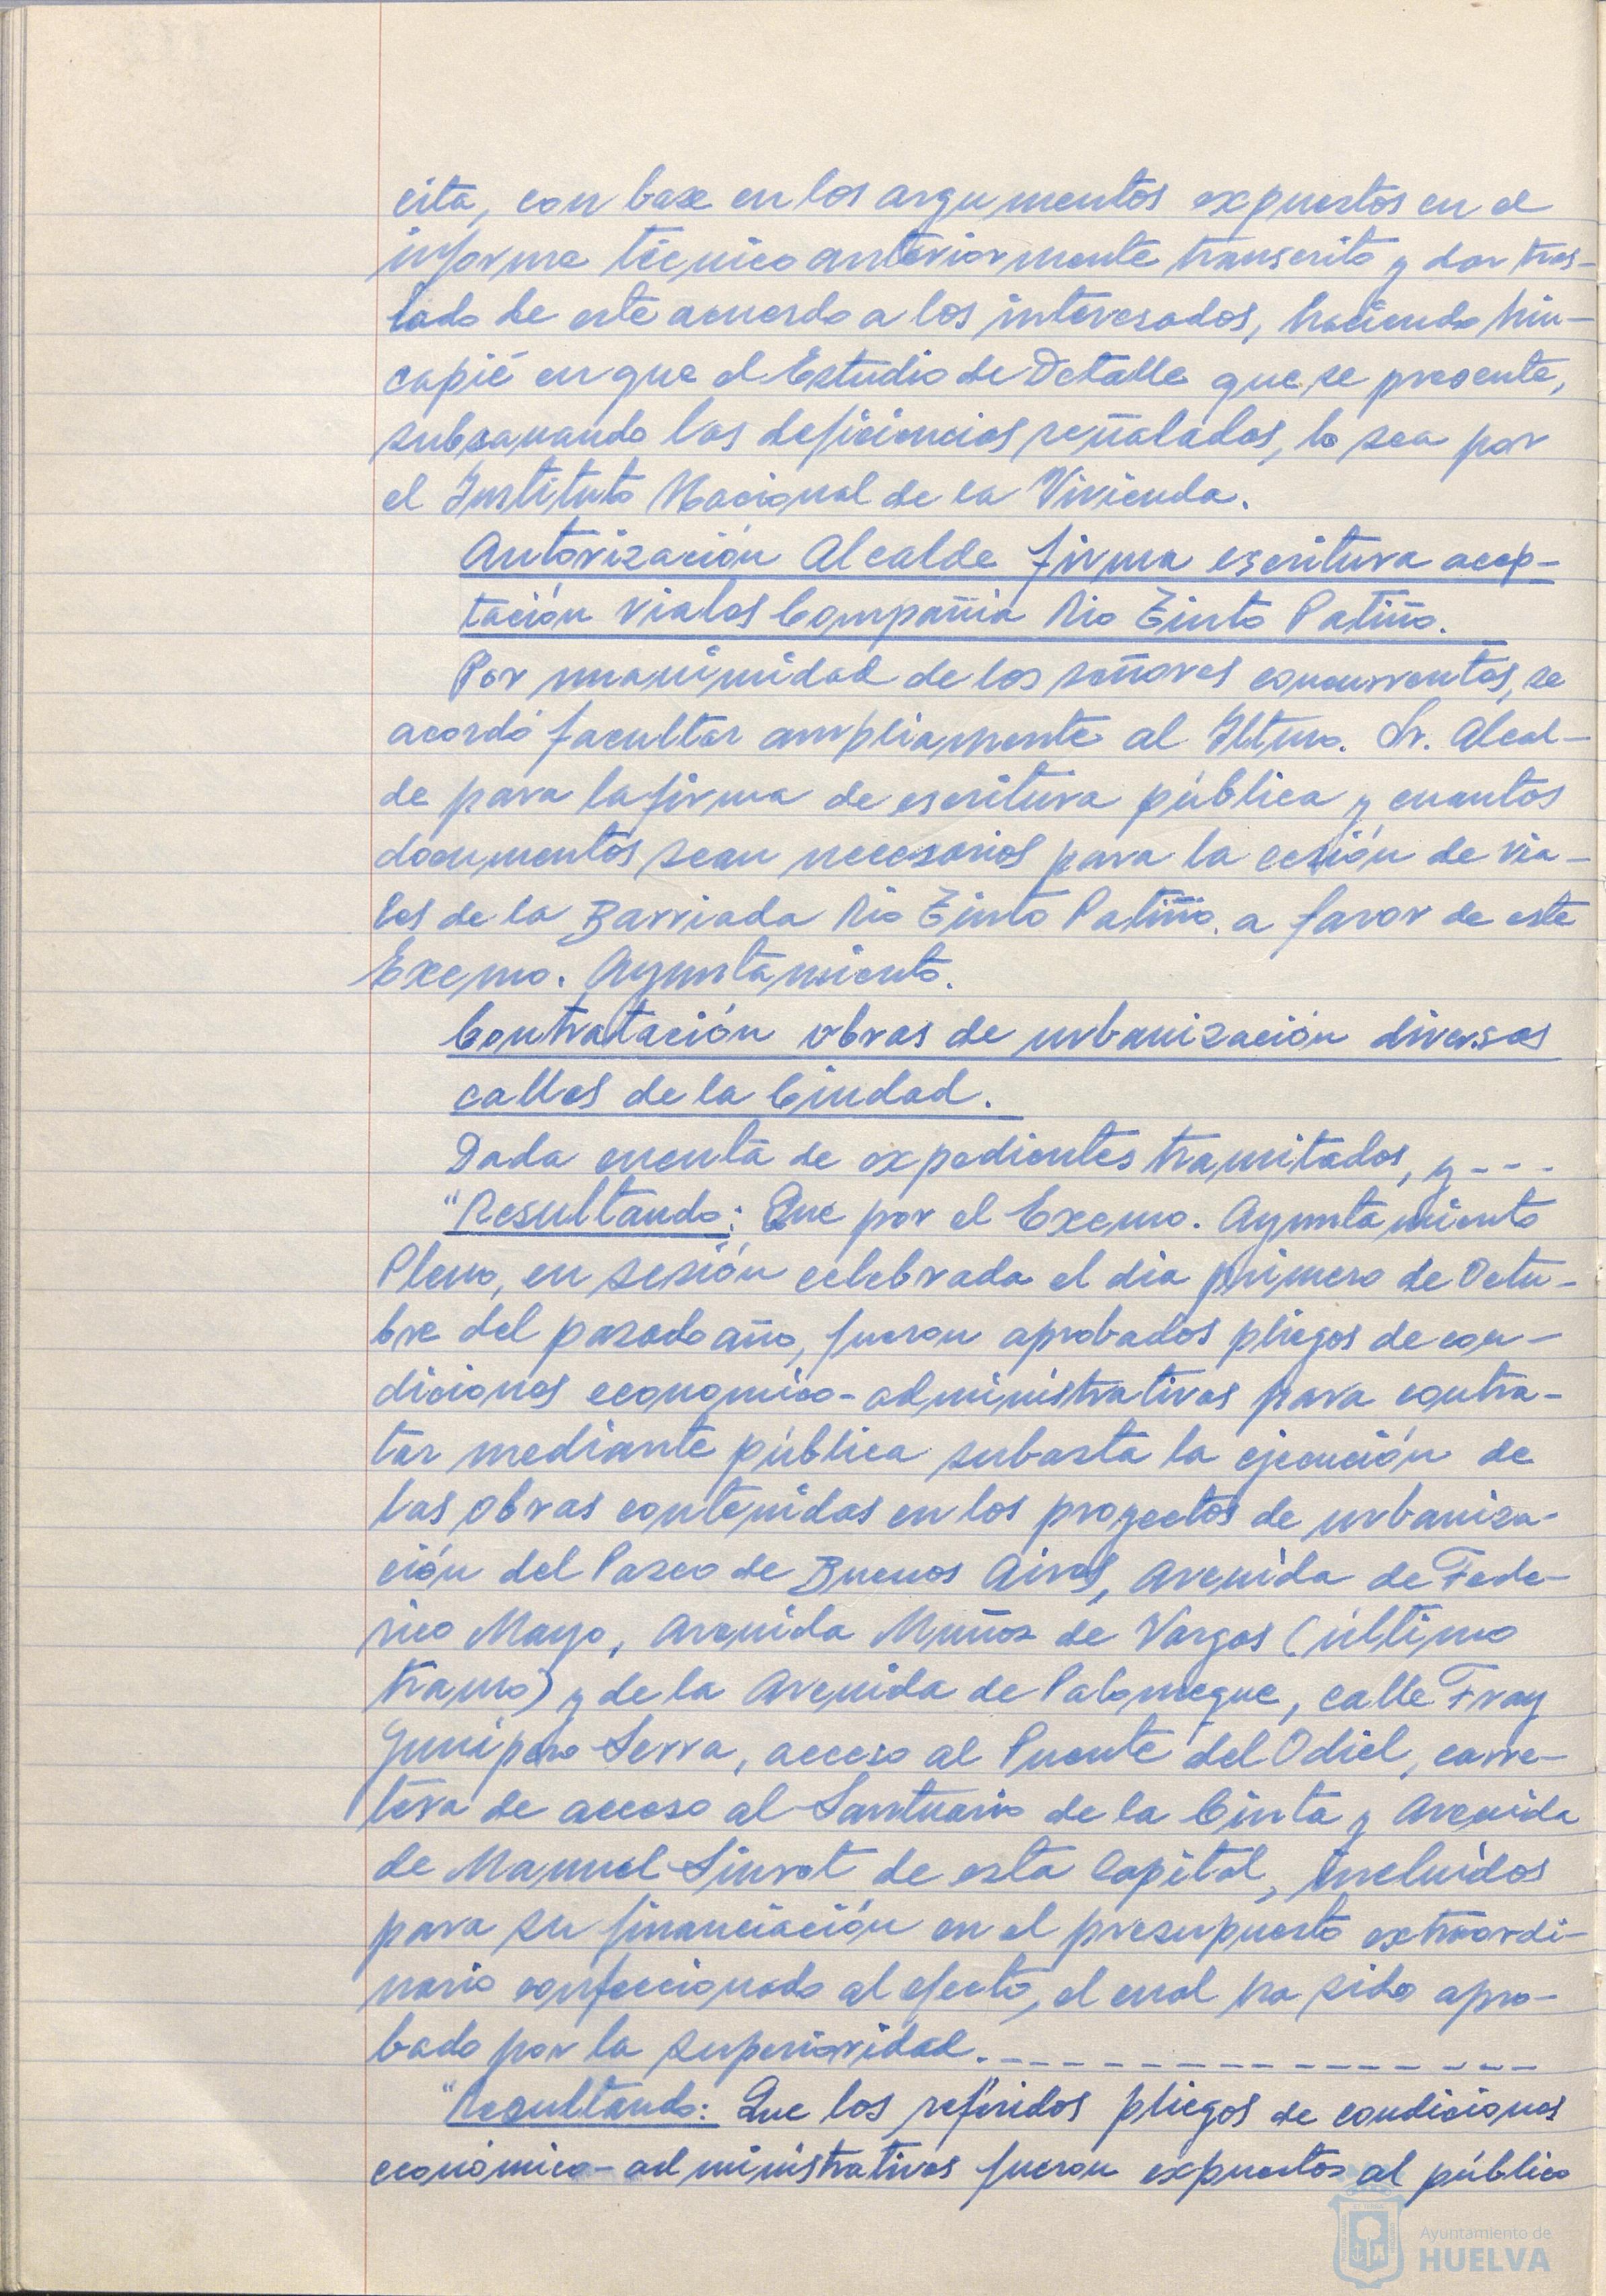 cita, con base en los argumentos expuestos en el
informe técnico anteriormente transcrito y dar tras-
lado de este acuerdo a los interesados, haciendo hin-
capié en que el Estudio de Detalle que se presente,
subsanando las deficiencias señaladas, lo sea por
el Instituto Nacional de la Vivienda.
Autorización Alcalde firma escritura acep-
tación viales Compañia Rio Tinto Patiño.
Por unanimidad de los señores concurrentes, se
acordó facultar ampliamente al Iltmo. Sr. Alcal-
de para la firma de escritura pública y cuantos
documentos sean necesarios para la cesión de via-
les de la Barriada Rio Tinto Patiño, a favor de este
Excmo. Ayuntamiento.
Contratación obras de urbanización diversas
calles de la Ciudad.
Dada cuenta de expedientes tramitados, y - - -
"Resultando: Que por el Excmo. Ayuntamiento
Pleno, en sesión celebrada el dia primero de Octu-
bre del pasado año, fueron aprobados pliegos de con-
diciones economico-administrativas para contra-
tar mediante pública subasta la ejecución de
las obras contenidas en los proyectos de urbaniza-
ción del Paseo de Buenos Aires, Avenida de Fede-
rico Mayo, Avenida Muñoz de Vargas (último
tramo) y de la Avenida de Palomeque, calle Fray
Junipero Serra, acceso al Puente del Odiel, carre-
tera de acceso al Santuario de la Cinta y Avenida
de Manuel Siurot de esta Capital, incluidos
para su financiación en el presupuesto extraordi-
nario confeccionado al efecto, el cual ha sido apro-
bado por la superioridad. - - - - - - - - - - - - - - -
"Resultando: Que los referidos pliegos de condiciones
económico-administrativas fueron expuestos al público
Ayuntamiento de
HUELVA